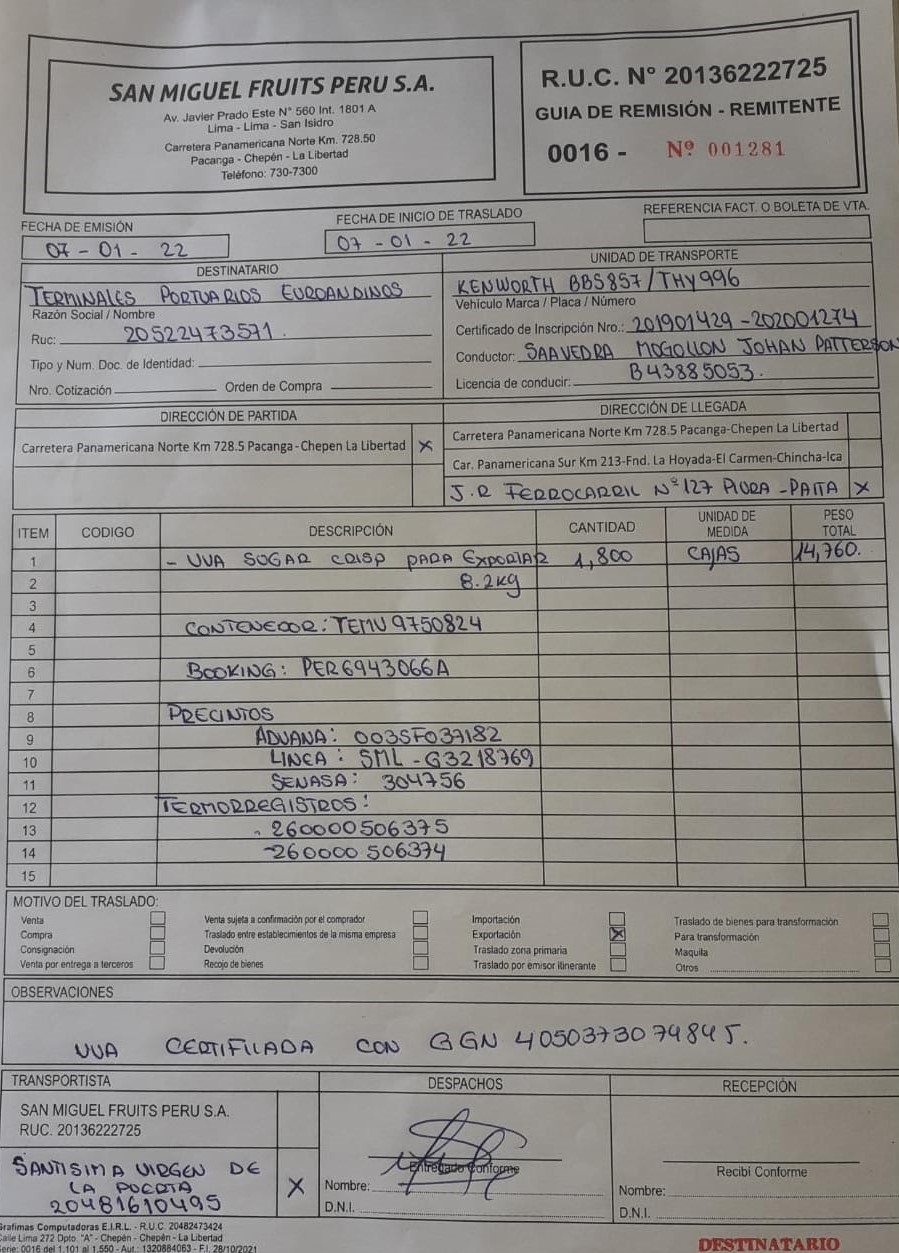 SAN MIGUEL FRUITS PERU S.A.
Av. Javier Prado Este N° 560 Int. 1801 A
Lima - Lima - San Isidro
Carretera Panamericana Norte Km. 728.50
Pacanga - Chepén - La Libertad
Teléfono: 730-7300
R.U.C. N° 20136222725
GUIA DE REMISIÓN - REMITENTE
0016 - Nº 001281
FECHA DE EMISIÓN
07 - 01 - 22
FECHA DE INICIO DE TRASLADO
07 - 01 - 22
REFERENCIA FACT. O BOLETA DE VTA.
DESTINATARIO
TERMINALES PORTUARIOS EUROANDINOS
Razón Social / Nombre
Ruc: 20522473571.
Tipo y Num. Doc. de Identidad:
Nro. Cotización Orden de Compra
UNIDAD DE TRANSPORTE
KENWORTH BBS857/THY996
Vehículo Marca / Placa / Número
Certificado de Inscripción Nro.: 201901429-202001274
Conductor: SAAVEDRA MOGOLLON JOHAN PATTERSON
Licencia de conducir: B43885053.
DIRECCIÓN DE PARTIDA
Carretera Panamericana Norte Km 728.5 Pacanga-Chepen La Libertad X
DIRECCIÓN DE LLEGADA
Carretera Panamericana Norte Km 728.5 Pacanga-Chepen La Libertad
Car. Panamericana Sur Km 213-Fnd. La Hoyada-El Carmen-Chincha-Ica
J.R FERROCARRIL Nº127 PIURA-PAITA X
ITEM CODIGO DESCRIPCIÓN CANTIDAD UNIDAD DE MEDIDA PESO TOTAL
1 - UVA SUGAR CRISP PARA EXPORTAR 1,800 CAJAS 14,760.
2 8.2kg
3
4 CONTENEDOR: TEMU9750824
5
6 BOOKING: PER6943066A
7
8 PRECINTOS
9 ADUANA: 003SF037182
10 LINEA: SML-G3218769
11 SENASA: 304756
12 TERMORREGISTROS:
13 - 260000506375
14 -260000506374
15
MOTIVO DEL TRASLADO:
Venta
Compra
Consignación
Venta por entrega a terceros
Venta sujeta a confirmación por el comprador
Traslado entre establecimientos de la misma empresa
Devolución
Recojo de bienes
Importación
Exportación X
Traslado zona primaria
Traslado por emisor itinerante
Traslado de bienes para transformación
Para transformación
Maquila
Otros
OBSERVACIONES
UVA CERTIFICADA CON GGN 4050373074845.
TRANSPORTISTA
SAN MIGUEL FRUITS PERU S.A.
RUC. 20136222725
SANTISIMA VIRGEN DE
LA PUERTA
20481610495 X
DESPACHOS
Entregado Conforme
Nombre:
D.N.I.
RECEPCIÓN
Recibi Conforme
Nombre:
D.N.I.
Grafimas Computadoras E.I.R.L. - R.U.C. 20482473424
Calle Lima 272 Dpto. "A" - Chepén - Chepén - La Libertad
Serie: 0016 del 1,101 al 1,550 - Aut.: 1320884063 - F.I. 28/10/2021
DESTINATARIO